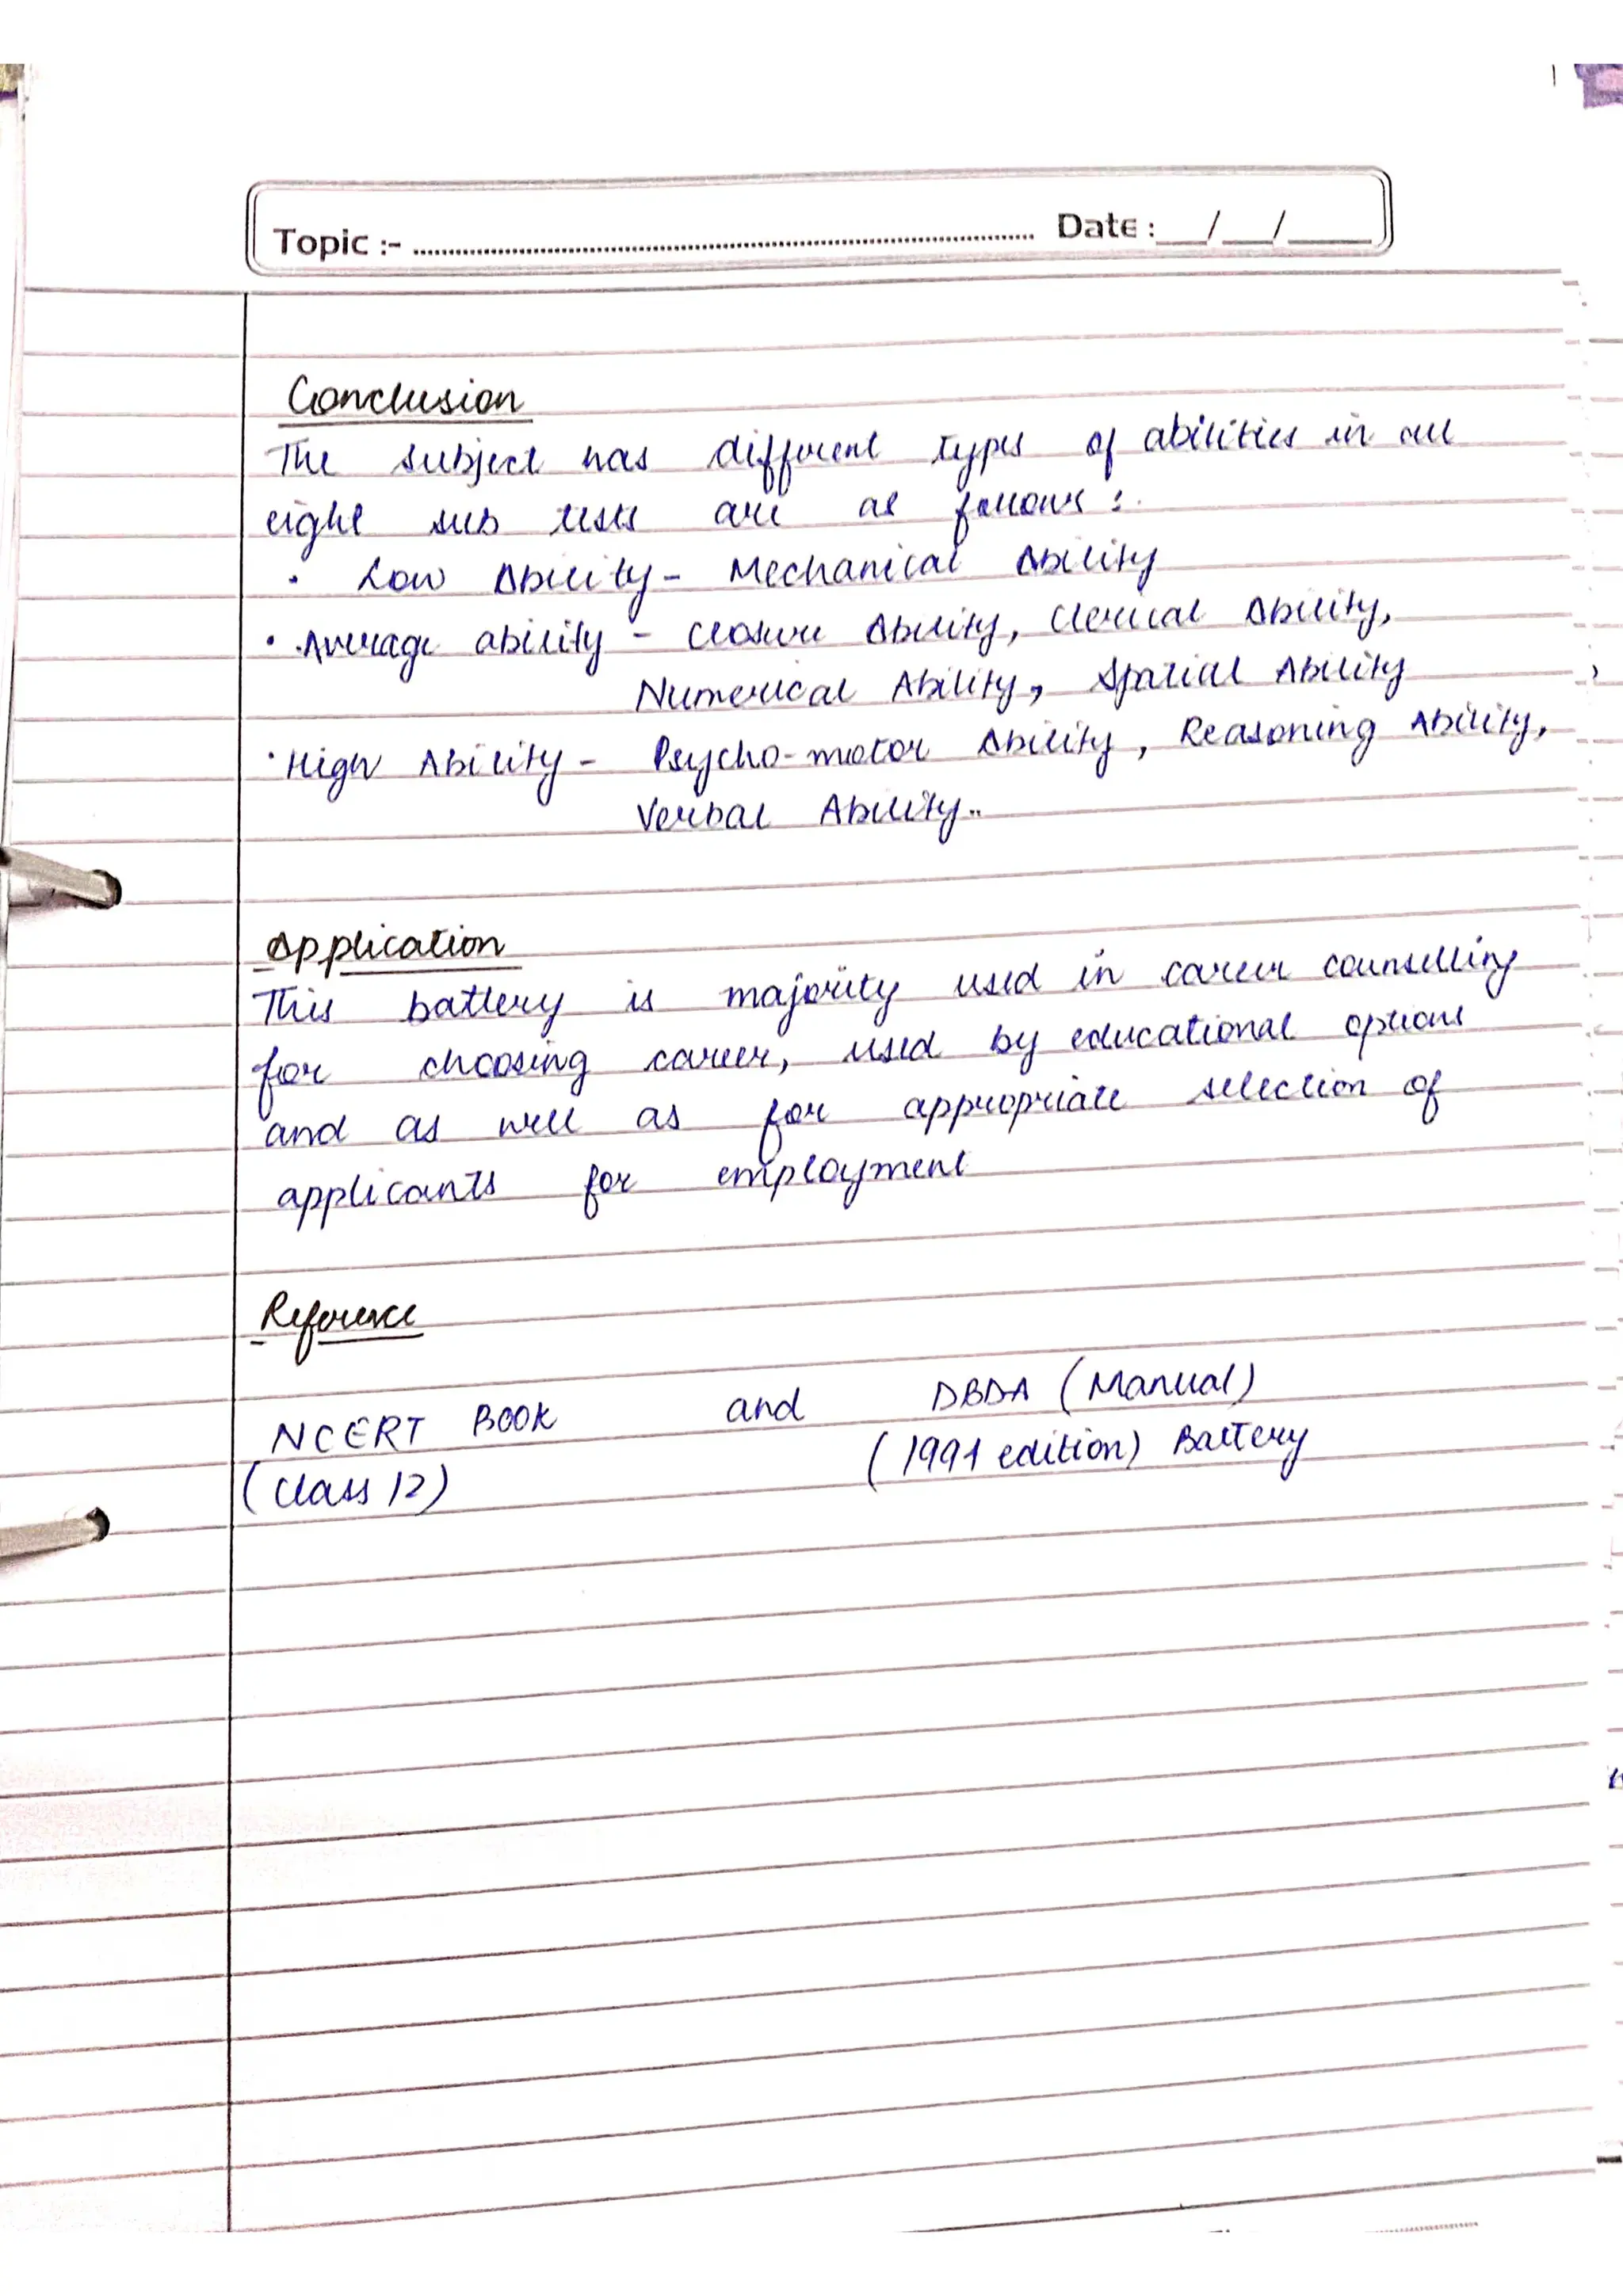 Topic :- ........................ Date : __/__/____
Conclusion
The subject has different types of abilities in all
eight sub tests are as follows :
• Low Ability - Mechanical Ability
• Average ability - Closure Ability, Clerical Ability,
Numerical Ability, Spatial Ability
• High Ability - Psycho-motor Ability, Reasoning Ability,
Verbal Ability..
Application
This battery is majority used in career counselling
for choosing career, used by educational options
and as well as for appropriate selection of
applicants for employment
Reference
NCERT BOOK and DBDA (Manual)
(Class 12) (1991 edition) Battery